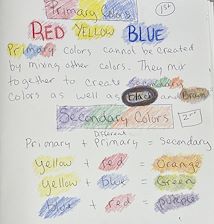 Primary Colors 1st
RED YELLOW BLUE
Primary colors cannot be created
by mixing other colors. They mix
together to create Secondary
colors as well as black and Brown
Secondary Colors 2nd
Different
Primary + Primary = Secondary
yellow + red = Orange
yellow + blue = Green
blue + red = purple